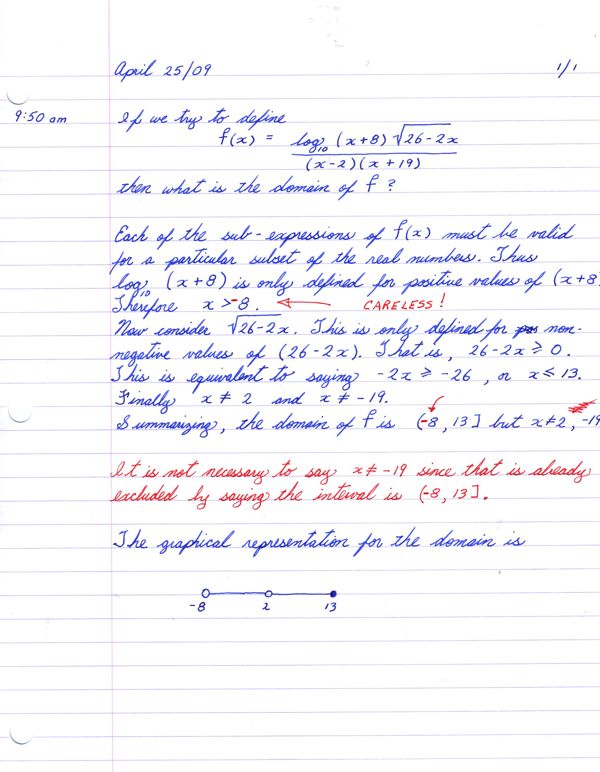 April 25/09 1/1
9:50 am If we try to define
f(x) = log₁₀ (x+8) √26-2x
(x-2)(x+19)
then what is the domain of f ?
Each of the sub-expressions of f(x) must be valid
for a particular subset of the real numbers. Thus
log₁₀ (x+8) is only defined for positive values of (x+8)
Therefore x > -8. ← CARELESS!
Now consider √26-2x. This is only defined for non-
negative values of (26-2x). That is, 26-2x ⩾ 0.
This is equivalent to saying -2x ⩾ -26, or x ⩽ 13.
Finally x ≠ 2 and x ≠ -19.
Summarizing, the domain of f is (-8, 13] but x≠2, -19
It is not necessary to say x≠-19 since that is already
excluded by saying the interval is (-8, 13].
The graphical representation for the domain is
-8 2 13